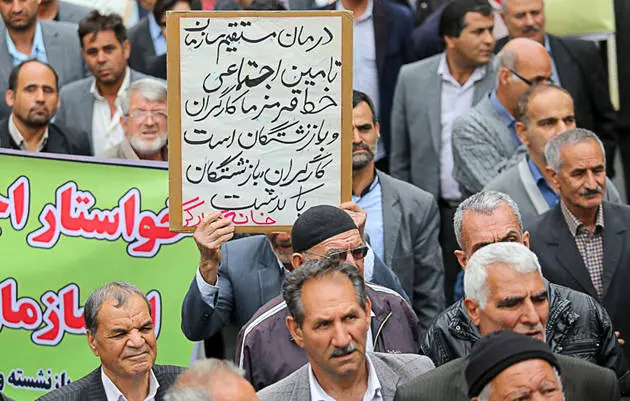 درمان مستقیم سازمان
تامین اجتماعی
خط قرمز ما کارگران
و بازنشتگان است
کارگران بازنشتگان
خانه کارگر
خواستار اج
سازما
بازنشسته و